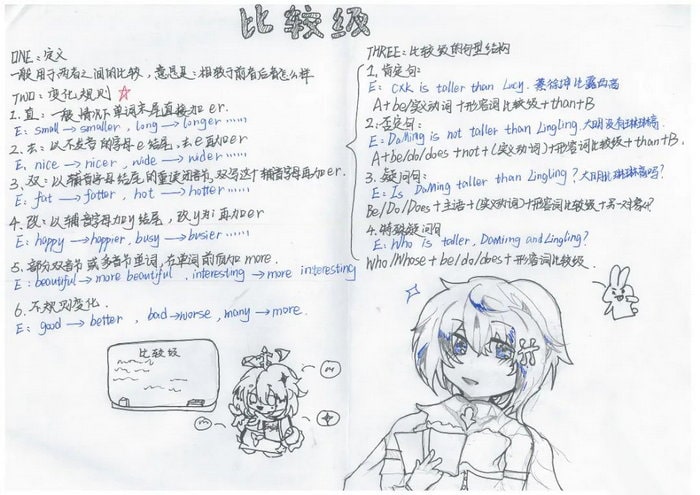 比较级
ONE：定义
一般用于两者之间的比较，意思是：相较于前者后者怎么样
TWO：变化规则
1. 直：一般情况下单词末尾直接加er.
E: small→smaller , long→longer ······
2. 去：以不发音的字母e结尾，去e再加er
E, nice→nicer , wide→wider ······
3. 双：以辅音字母结尾的重读闭音节，双写这个辅音字母再加er.
E: fat→fatter , hot→hotter ······
4. 改：以辅音字母加y结尾，改y为i再加er
E: happy→happier, busy→busier ······
5. 部分双音节或多音节单词，在单词前面加more.
E: beautiful→more beautiful , interesting→more interesting
6. 不规则变化.
E: good→better , bad→worse, many→more.
比较级
THREE：比较级的句型结构
1. 肯定句：
E: CXK is taller than Lucy. 蔡徐坤比露西高
A+be/实义动词+形容词比较级+than+B
2. 否定句：
E: DaMing is not taller than Lingling. 大明没有玲玲高
A+be/do/does+not+(实义动词)+形容词比较级+than+B.
3. 疑问句：
E: Is DaMing taller than Lingling? 大明比玲玲高吗？
Be/Do/Does+主语+(实义动词)+形容词比较级+另一对象？
4. 特殊疑问句
E: Who is taller, DaMing and Lingling?
Who/Whose+be/do/does+形容词比较级.